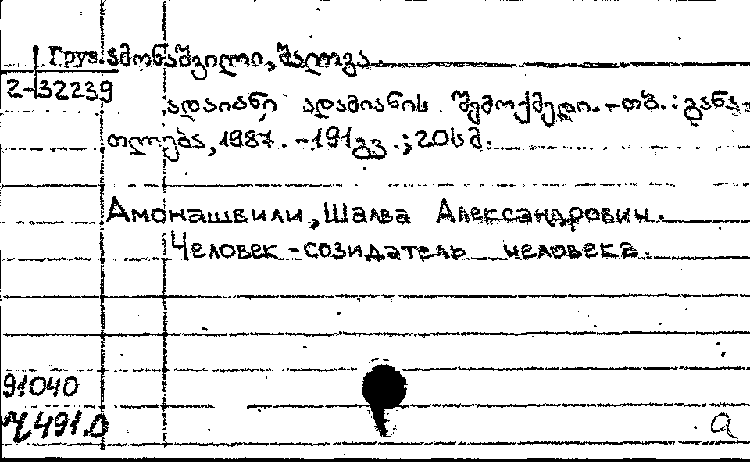 Груз. ამონაშვილი, შალვა.
2-32239
ადამიანი ადამიანის შემოქმედი. - თბ. : განა-
თლება, 1987. - 191გვ. ; 20სმ.
Амонашвили, Шалва Александрович.
Человек - созидатель человека.
91040
Ч 491.0
a